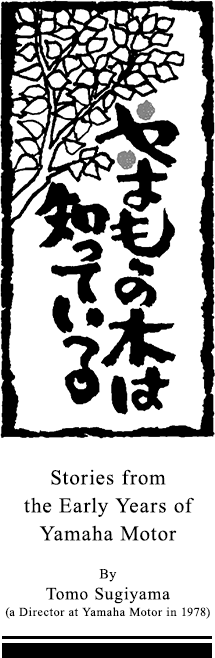 やまもゝの木は
知っている
Stories from
the Early Years of
Yamaha Motor
By
Tomo Sugiyama
(a Director at Yamaha Motor in 1978)